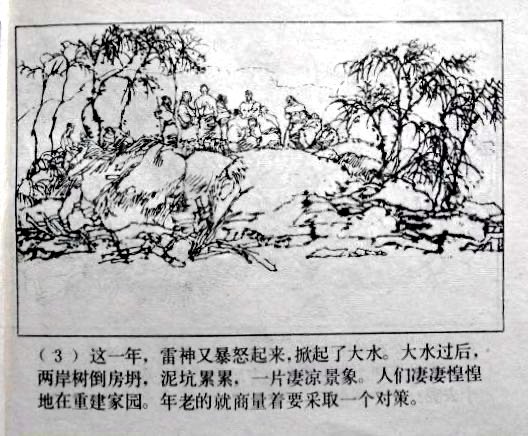 （3）这一年，雷神又暴怒起来，掀起了大水。大水过后，
两岸树倒房坍，泥坑累累，一片凄凉景象。人们凄凄惶惶
地在重建家园。年老的就商量着要采取一个对策。